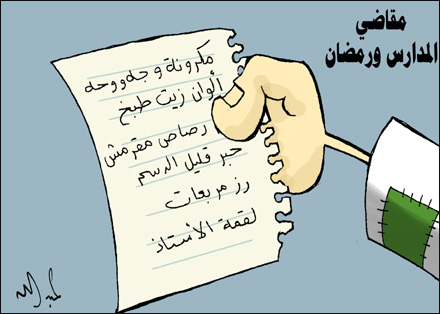 مقاضي
المدارس ورمضان
مكرونة وجه ووجه
ألوان زيت طبخ
رصاص مقرمش
حبر قليل الدسم
رز مربعات
لقمة الاستاذ